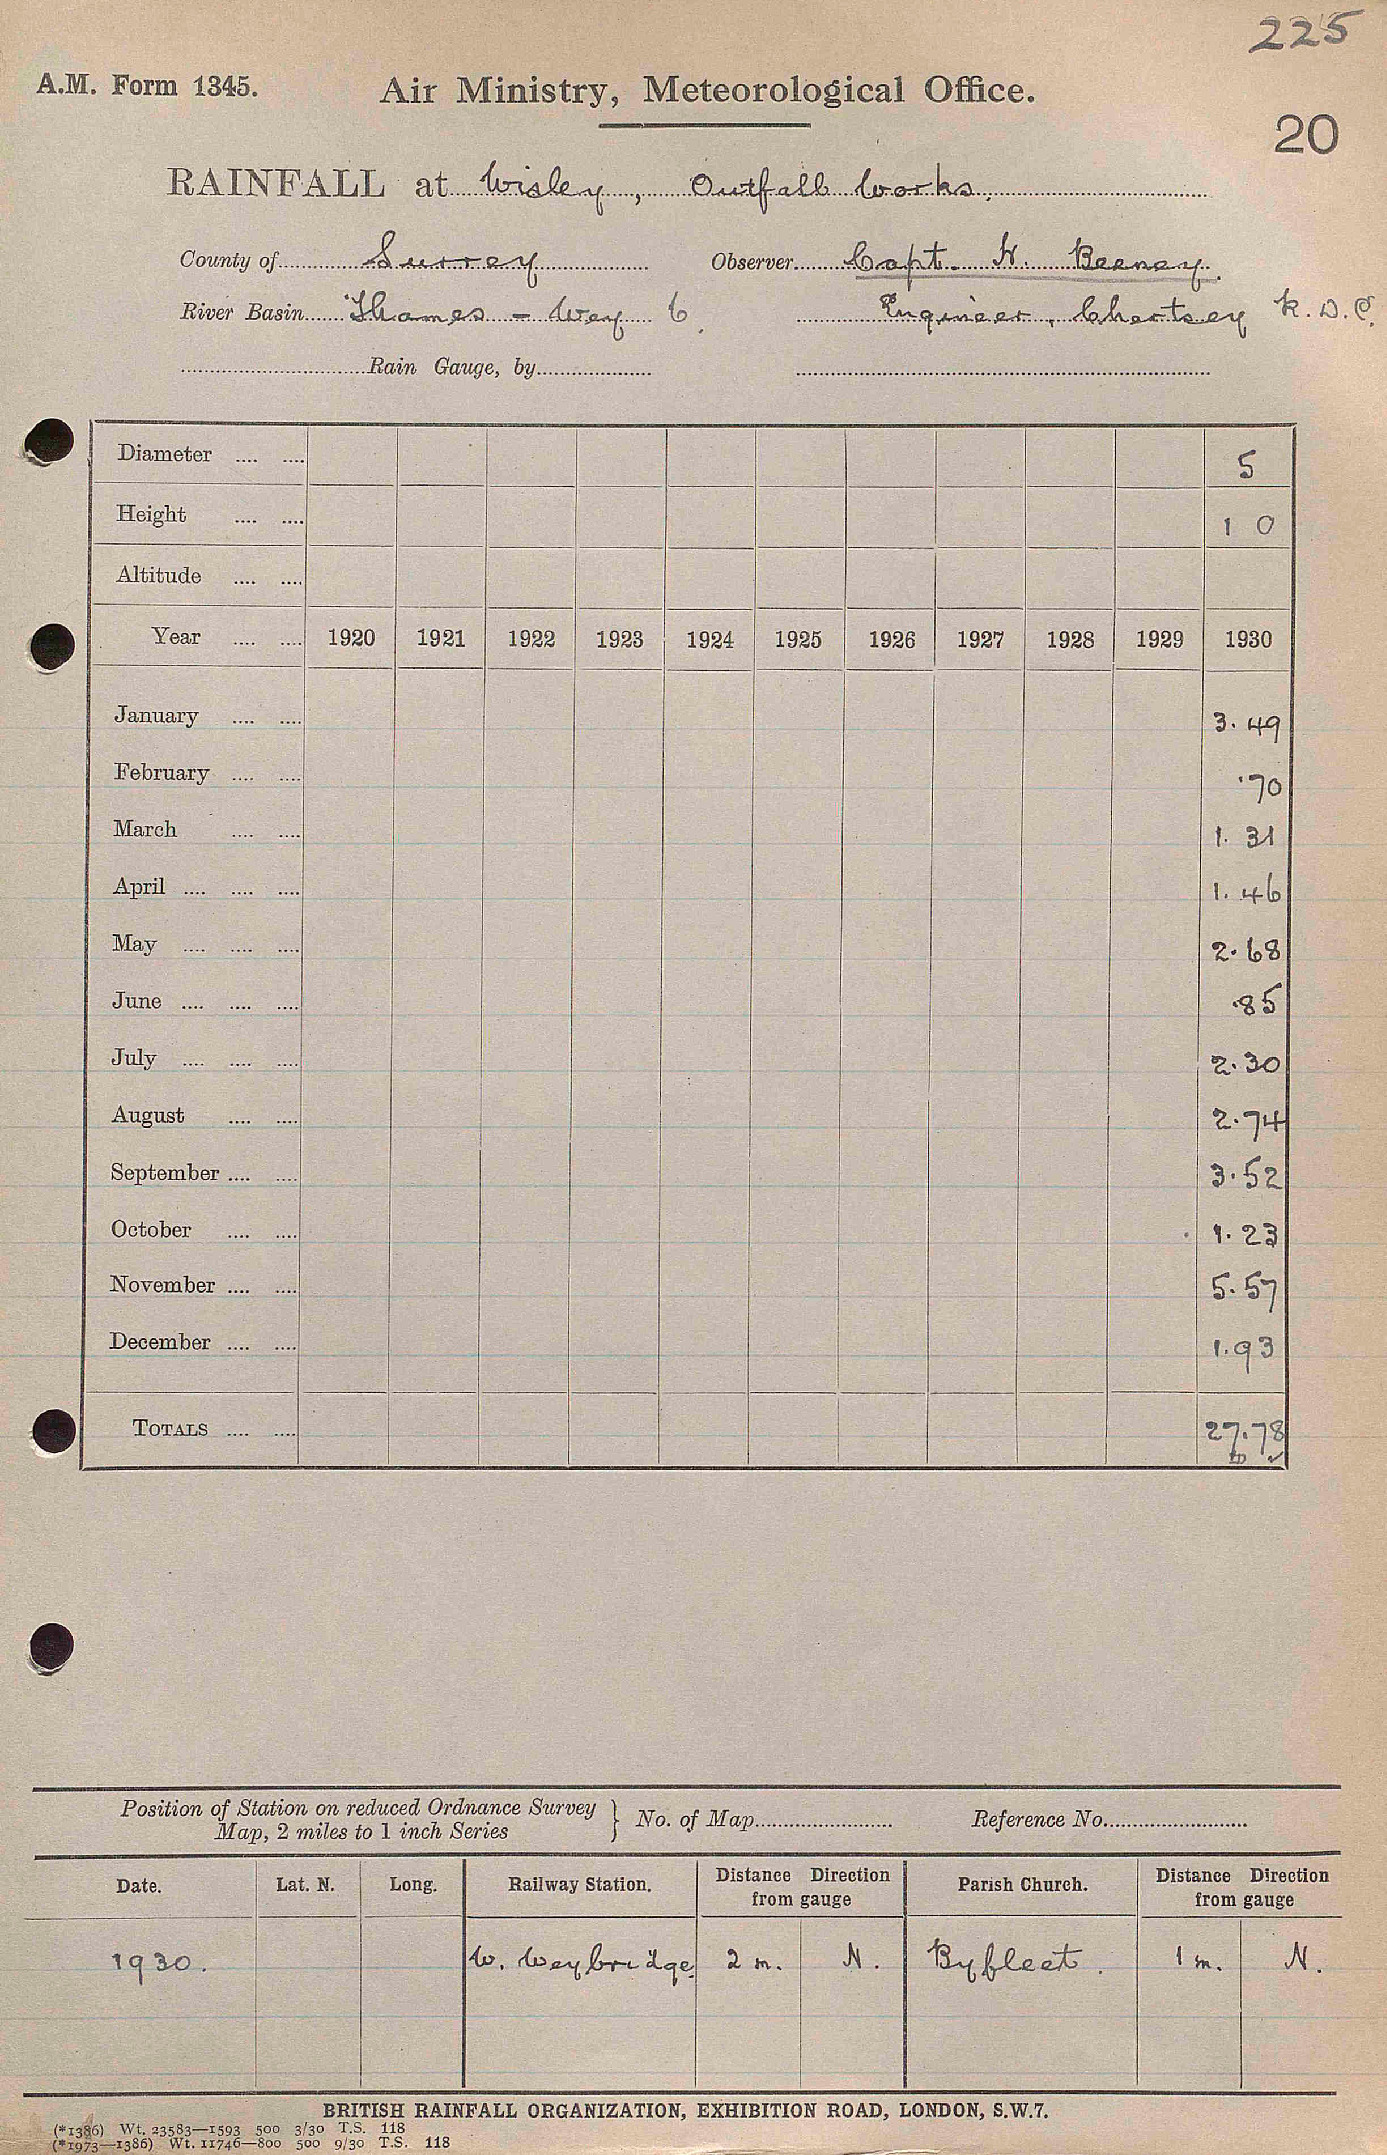 225
A.M. Form 1345. Air Ministry, Meteorological Office.
20
RAINFALL at Wisley, Outfall Works.
County of Surrey Observer Capt. H. Beeney.
River Basin Thames - Wey 6. Engineer, Chertsey R.D.C.
Rain Gauge, by
Diameter .... .... 5
Height .... .... 1 0
Altitude .... ....
Year .... .... 1920 1921 1922 1923 1924 1925 1926 1927 1928 1929 1930
January .... .... 3.49
February .... .... .70
March .... .... 1.31
April .... .... .... 1.46
May .... .... .... 2.68
June .... .... .... .85
July .... .... .... 2.30
August .... .... 2.74
September .... .... 3.52
October .... .... 1.23
November .... .... 5.57
December .... .... 1.93
TOTALS .... .... 27.78
Position of Station on reduced Ordnance Survey
Map, 2 miles to 1 inch Series } No. of Map Reference No.
Date. Lat. N. Long. Railway Station. Distance Direction from gauge Parish Church. Distance Direction from gauge
1930. W. Weybridge. 2 m. N. Byfleet. 1 m. N.
BRITISH RAINFALL ORGANIZATION, EXHIBITION ROAD, LONDON, S.W.7.
(*1386) Wt. 23583—1593 500 3/30 T.S. 118
(*1973—1386) Wt. 11746—800 500 9/30 T.S. 118